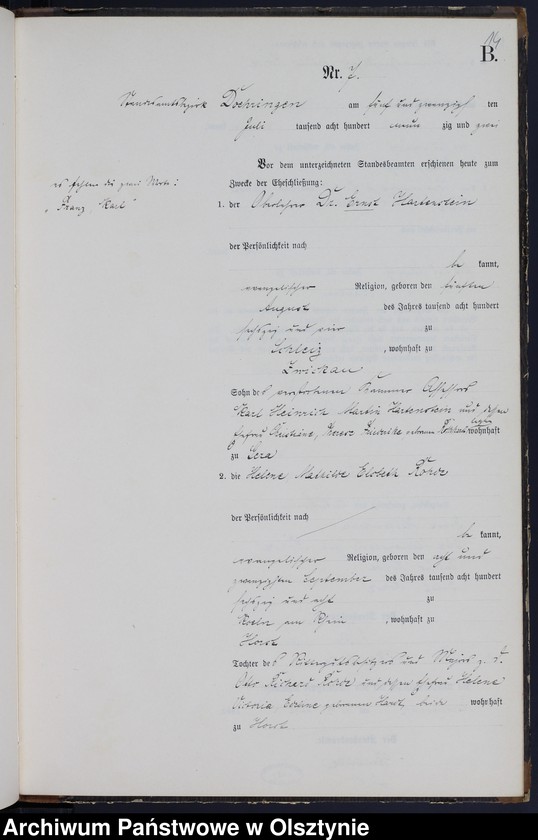 14
B.
Nr. 7.
Standesamtsbezirk Doehringen am fünf und zwanzigsten
Juli tausend acht hundert neun zig und zwei
Vor dem unterzeichneten Standesbeamten erschienen heute zum
Zwecke der Eheschließung:
es fehlen die zwei Worte:
"Franz, Karl"
1. der Oberlehrer Dr. Ernst Hartenstein
der Persönlichkeit nach
be kannt,
evangelischer Religion, geboren den fünften
August des Jahres tausend acht hundert
sechszig und vier zu
Schleiz, wohnhaft zu
Zwickau
Sohn des verstorbenen Kammer Assessors
Karl Heinrich Martin Hartenstein und dessen
Ehefrau Christiane, geborene wohnhaft
zu Gera
2. die Helene Mathilde Elsbeth
der Persönlichkeit nach
be kannt,
evangelischer Religion, geboren den acht und
zwanzigsten September des Jahres tausend acht hundert
sechszig und acht zu
Koeln am Rhein, wohnhaft zu
Horst
Tochter des Rittergutsbesitzers und Majors z. D.
Otto Richard und dessen Ehefrau Helene
Victoria geborenen beide wohnhaft
zu Horst
Archiwum Państwowe w Olsztynie